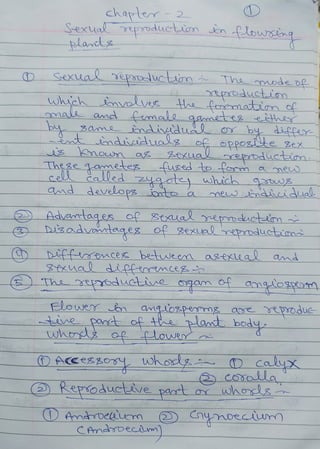 Chapter - 2 ①
Sexual reproduction in flowering
plants
① Sexual reproduction :- The mode of
reproduction
which involves the formation of
male and female gametes either
by same individual or by differ-
ent individuals of opposite sex
is known as sexual reproduction.
These gametes fused to form a new
cell called zygote, which grows
and develops into a new individual
② Advantages of sexual reproduction :-
③ Disadvantages of sexual reproduction :-
④ Differences between asexual and
sexual differences :-
⑤ The reproductive organ of angiosperm
Flower in angiosperms are reproduc-
-tive part of the plant body.
whorls of flower :-
① Accessory whorls :- ① calyx
② corolla.
② Reproductive part or whorls :-
① Androecium ② Gynoecium
(Androecium)